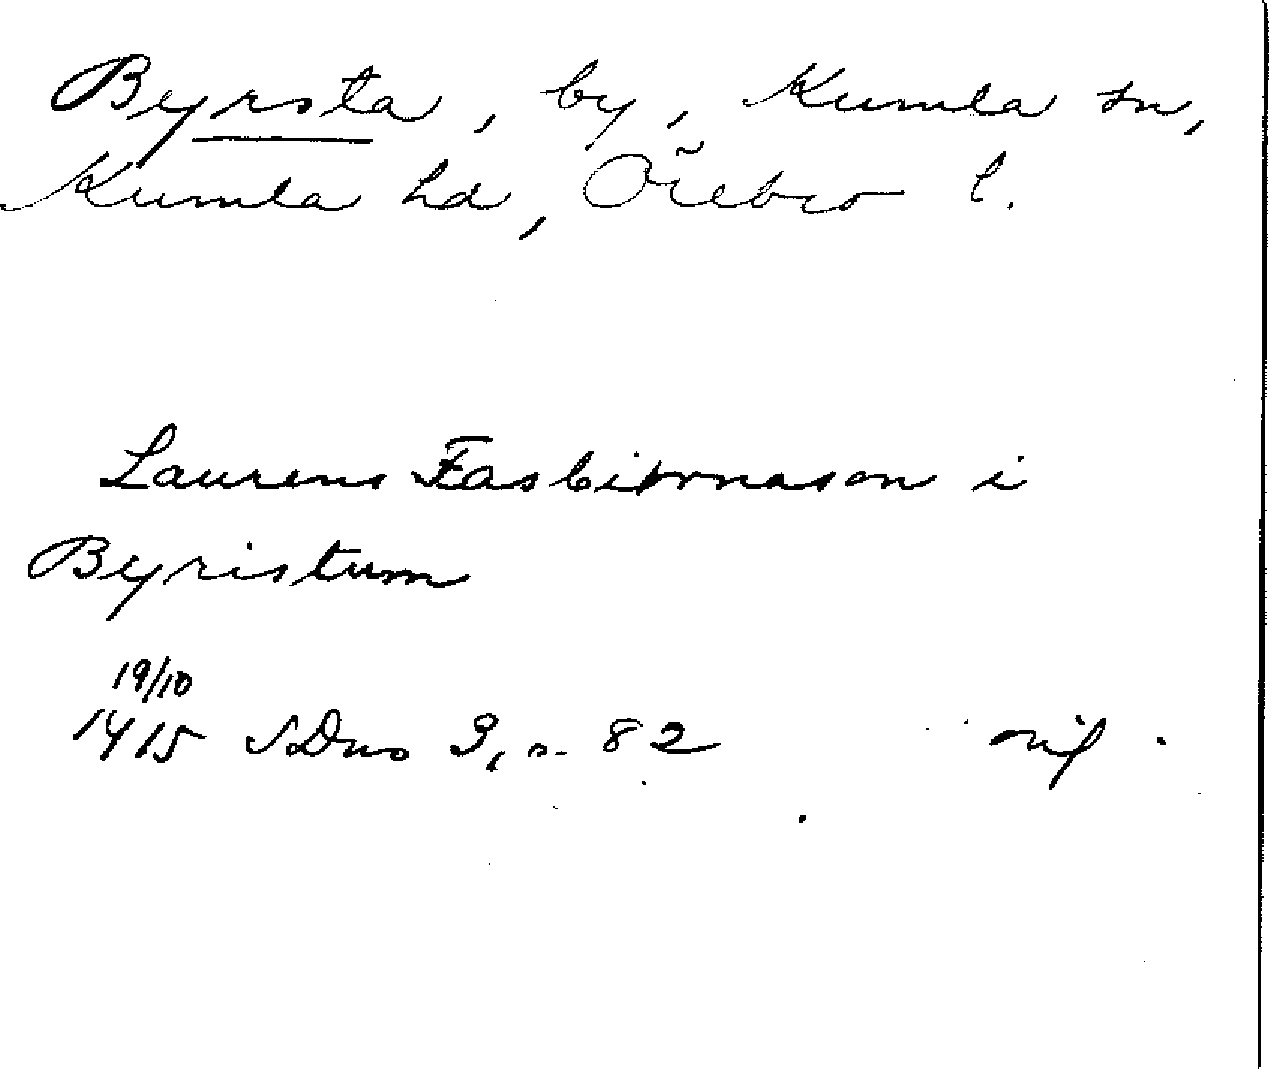 Byrsta, by, Kumla sn,
Kumla hd, Örebro l.
Laurens Fasbiornason i
Byristum
19/10
1415 SDns 3, s. 82 orig